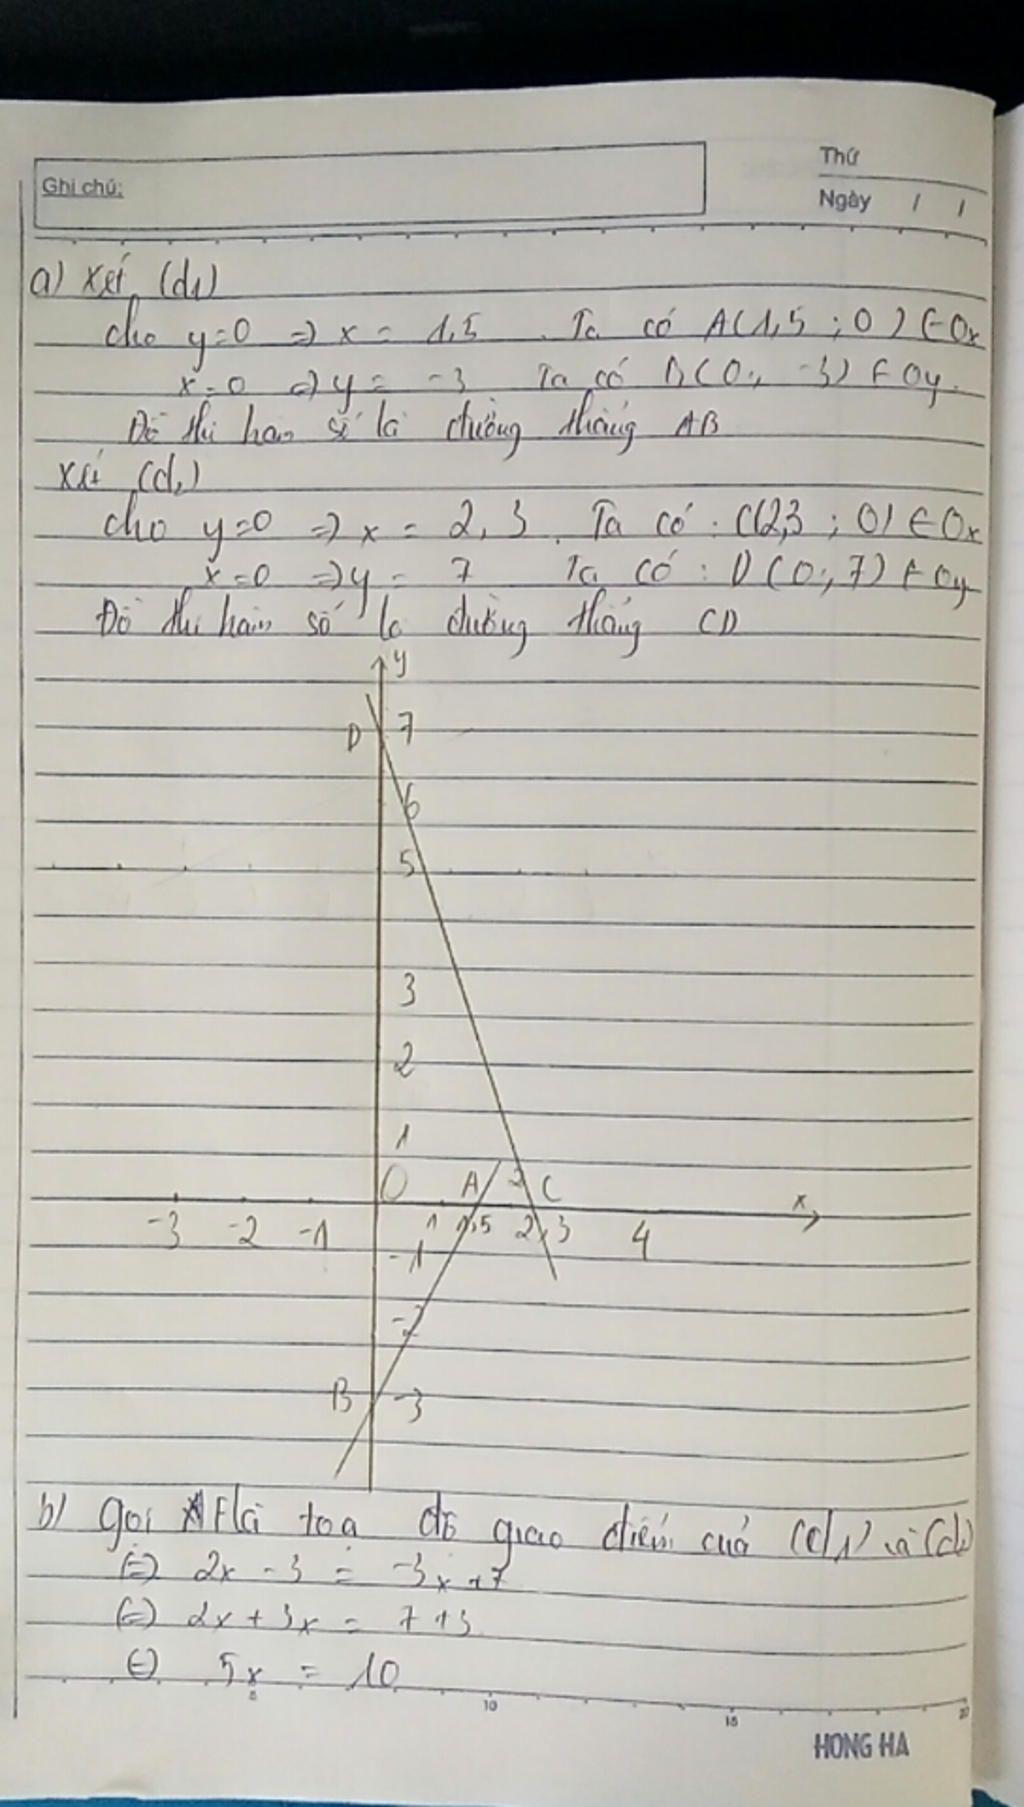 Ghi chú:
Thứ
Ngày / /
a) Xét (d1)
cho y=0 => x = 1,5 . Ta có A(1,5 ; 0) ∈ Ox
x=0 => y = -3 Ta có B(0; -3) ∈ Oy.
Đồ thị hàm số là đường thẳng AB
Xét (d2)
cho y=0 => x = 2,3. Ta có : C(2,3 ; 0) ∈ Ox
x=0 => y = 7 Ta có : D(0; 7) ∈ Oy
Đồ thị hàm số là đường thẳng CD
y
D 7
6
5
3
2
1
O A 2 C x
-3 -2 -1 1 1,5 2,3 4
-1
-2
B -3
b) gọi F là toạ độ giao điểm của (d1) và (d2)
<=> 2x - 3 = -3x + 7
<=> 2x + 3x = 7 + 3
<=> 5x = 10
5 10 15 20
HONG HA